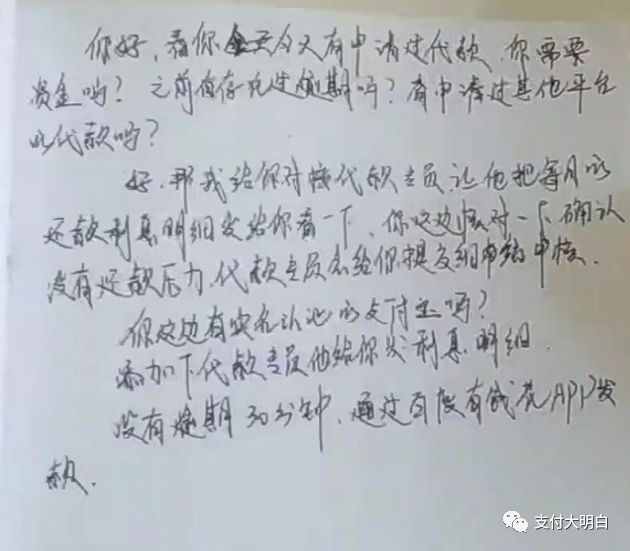 你好，看你今天有申请过代款，你需要
资金吗？之前有存在过逾期吗？有申请过其他平台
的代款吗？
好，那我给你对接代款专员，让他把每月的
还款利息明细发给你看一下，你这边核对一下，确认
没有还款压力，代款专员会给你提交细审核.
你这边有实名认证的支付宝吗？
添加下代款专员他给你发利息明细.
没有逾期30分钟，通过百度有钱花APP发
款.
支付大明白